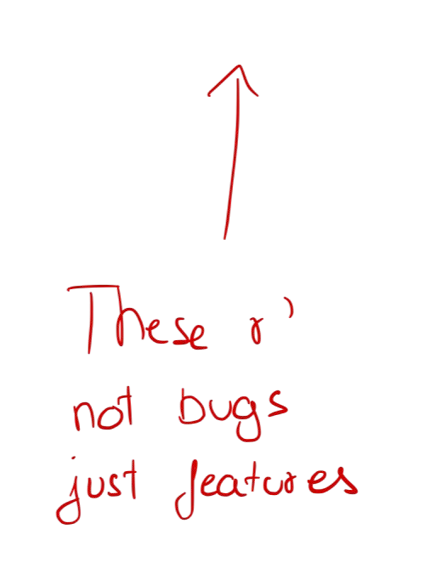 These r'
not bugs
just features